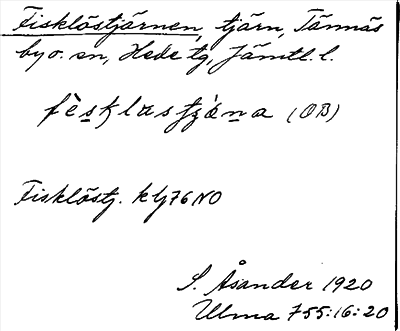 Fisklöstjärnen, tjärn, Tännäs
by o. sn, Hede tg, Jämtl. l.
(OB)
Fisklöstj. k bj 76 NO
S. Åsander 1920
Ulma 755:16:20